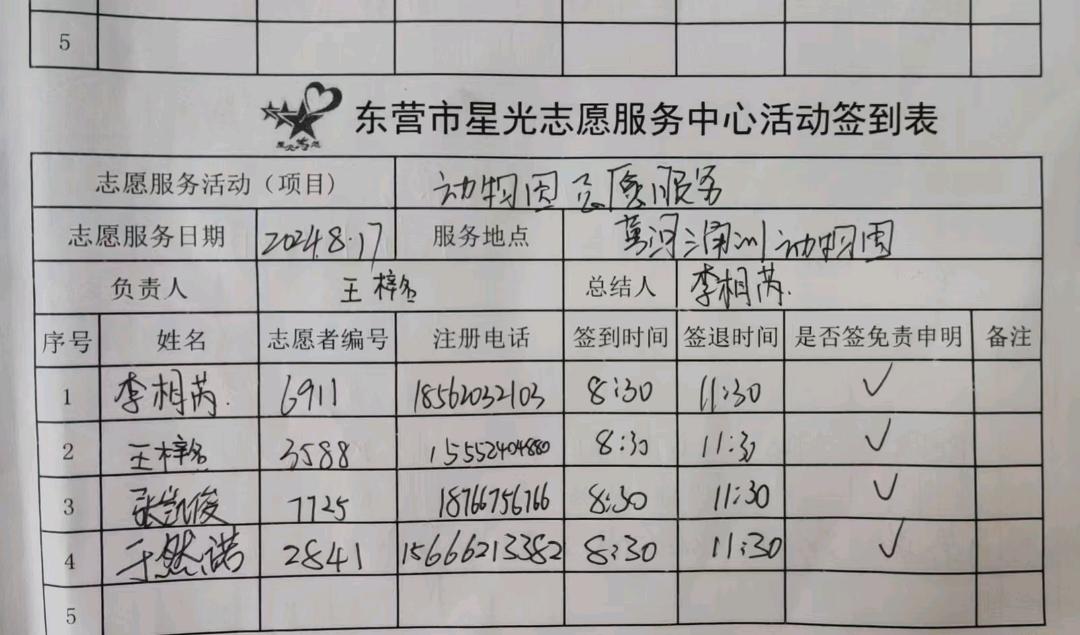 5
东营市星光志愿服务中心活动签到表
志愿服务活动（项目） 动物园志愿服务
志愿服务日期 2024.8.17 服务地点 黄河三角洲动物园
负责人 王梓名 总结人 李相芮.
序号 姓名 志愿者编号 注册电话 签到时间 签退时间 是否签免责申明 备注
1 李相芮. 6911 18562032103 8:30 11:30 ✓
2 王梓名 3588 15552404880 8:30 11:30 ✓
3 张凯俊 7725 18766756766 8:30 11:30 ✓
4 于燃诺 2841 15666213382 8:30 11:30 ✓
5